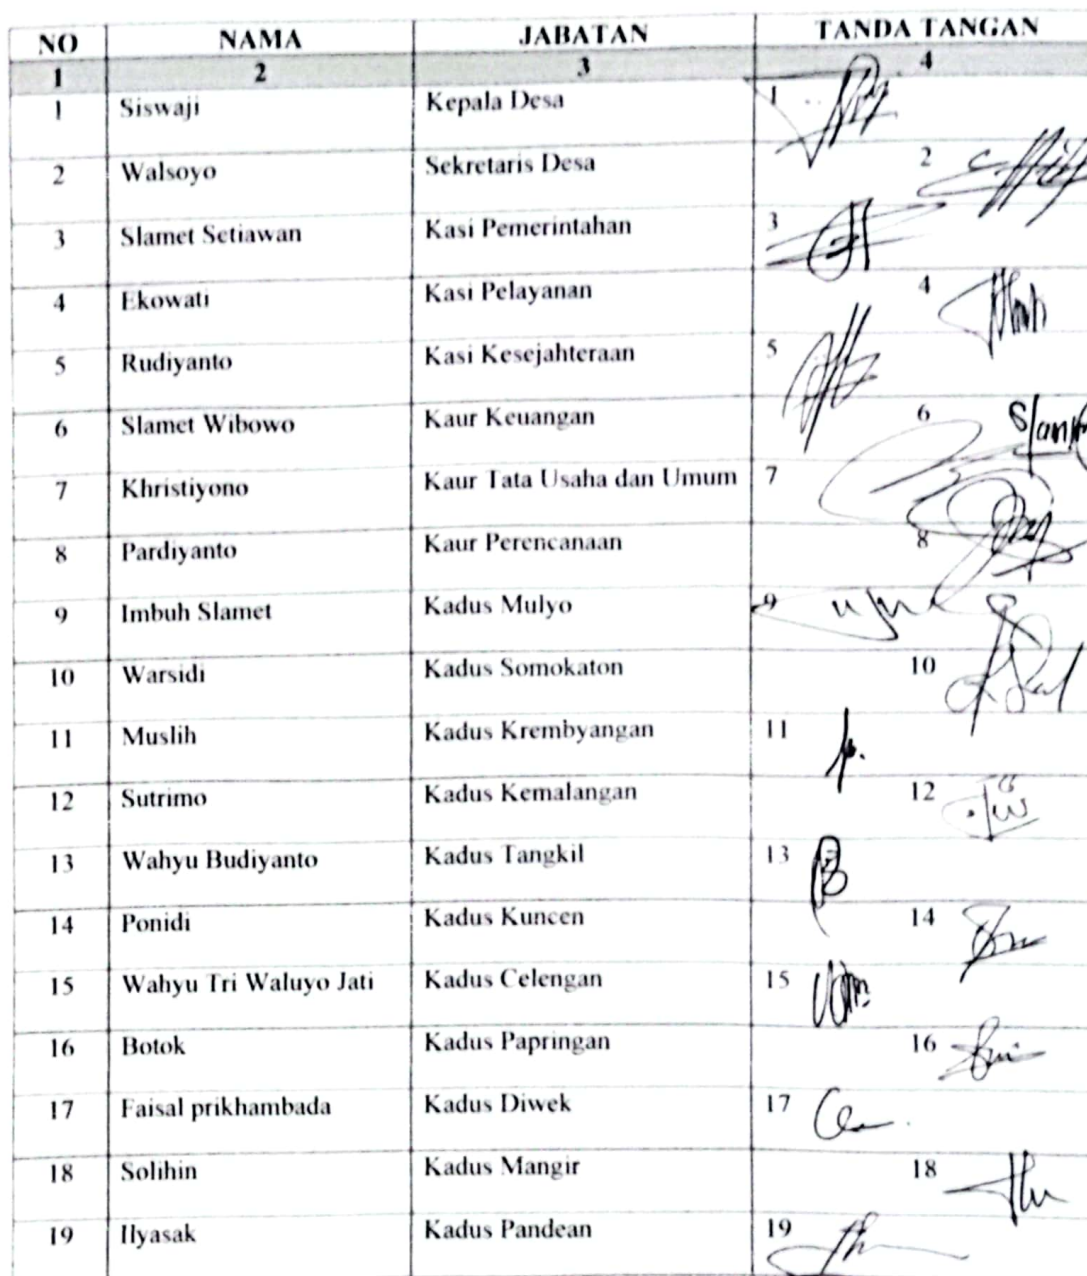 NO NAMA JABATAN TANDA TANGAN
1 2 3 4
1 Siswaji Kepala Desa 1
2 Walsoyo Sekretaris Desa 2
3 Slamet Setiawan Kasi Pemerintahan 3
4 Ekowati Kasi Pelayanan 4
5 Rudiyanto Kasi Kesejahteraan 5
6 Slamet Wibowo Kaur Keuangan 6
7 Khristiyono Kaur Tata Usaha dan Umum 7
8 Pardiyanto Kaur Perencanaan 8
9 Imbuh Slamet Kadus Mulyo 9
10 Warsidi Kadus Somokaton 10
11 Muslih Kadus Krembyangan 11
12 Sutrimo Kadus Kemalangan 12
13 Wahyu Budiyanto Kadus Tangkil 13
14 Ponidi Kadus Kuncen 14
15 Wahyu Tri Waluyo Jati Kadus Celengan 15
16 Botok Kadus Papringan 16
17 Faisal prikhambada Kadus Diwek 17
18 Solihin Kadus Mangir 18
19 Ilyasak Kadus Pandean 19